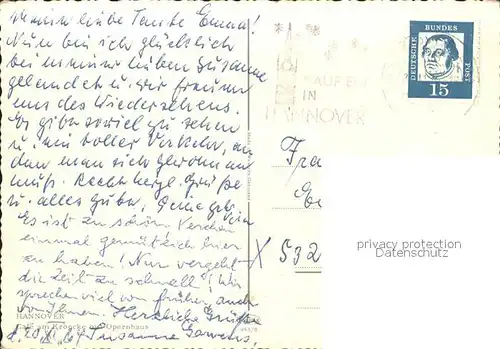 Meine liebe Tante Emma!
Nun bin ich glücklich
bei meiner lieben Susanne
gelandet u. wir freuen
uns des Wiedersehens.
Es gibt soviel zu sehen
u. ein toller Verkehr, an
den man sich gewöhnen
muß. Recht herzl. Grüße
u. alles Gute, Deine
Es ist zu schön,
einmal gemütlich hier
zu haben! Nur vergeht
die Zeit zu schnell! Wir
sprechen viel von früher, auch
von Ihnen. Herzliche Grüße
HANNOVER
Café am Kröpcke mit Opernhaus
Susanne
KAUF EIN
IN
HANNOVER
DEUTSCHE BUNDES POST
15
Fra
X 532
privacy protection
Datenschutz